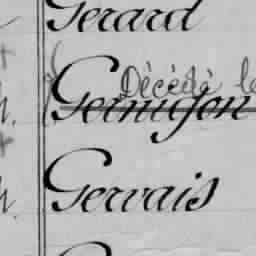 Gerard
Décédé le
Gernigon
Gervais